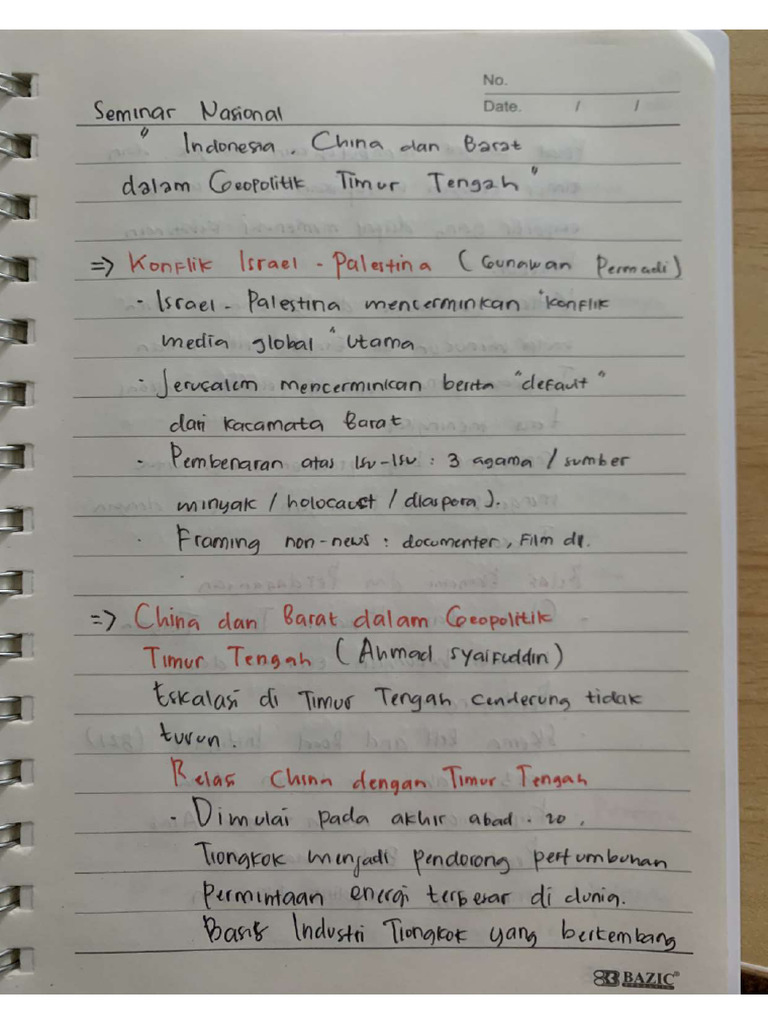 No.
Date. / /
Seminar Nasional
" Indonesia, China dan Barat
dalam Geopolitik Timur Tengah"
=> Konflik Israel - Palestina (Gunawan Permadi)
- Israel - Palestina mencerminkan "konflik
media global" utama
- Jerusalem mencerminkan berita "default"
dari kacamata Barat
- Pembenaran atas Isu-Isu : 3 agama / sumber
minyak / holocaust / diaspora ).
- Framing non-news : documenter, Film dll.
=> China dan Barat dalam Geopolitik
Timur Tengah (Ahmad Syaifuddin)
Eskalasi di Timur Tengah cenderung tidak
turun.
Relasi China dengan Timur Tengah
- Dimulai pada akhir abad . 20 ,
Tiongkok menjadi pendorong pertumbuhan
Permintaan energi terbesar di dunia.
Basis Industri Tiongkok yang berkembang
BAZIC